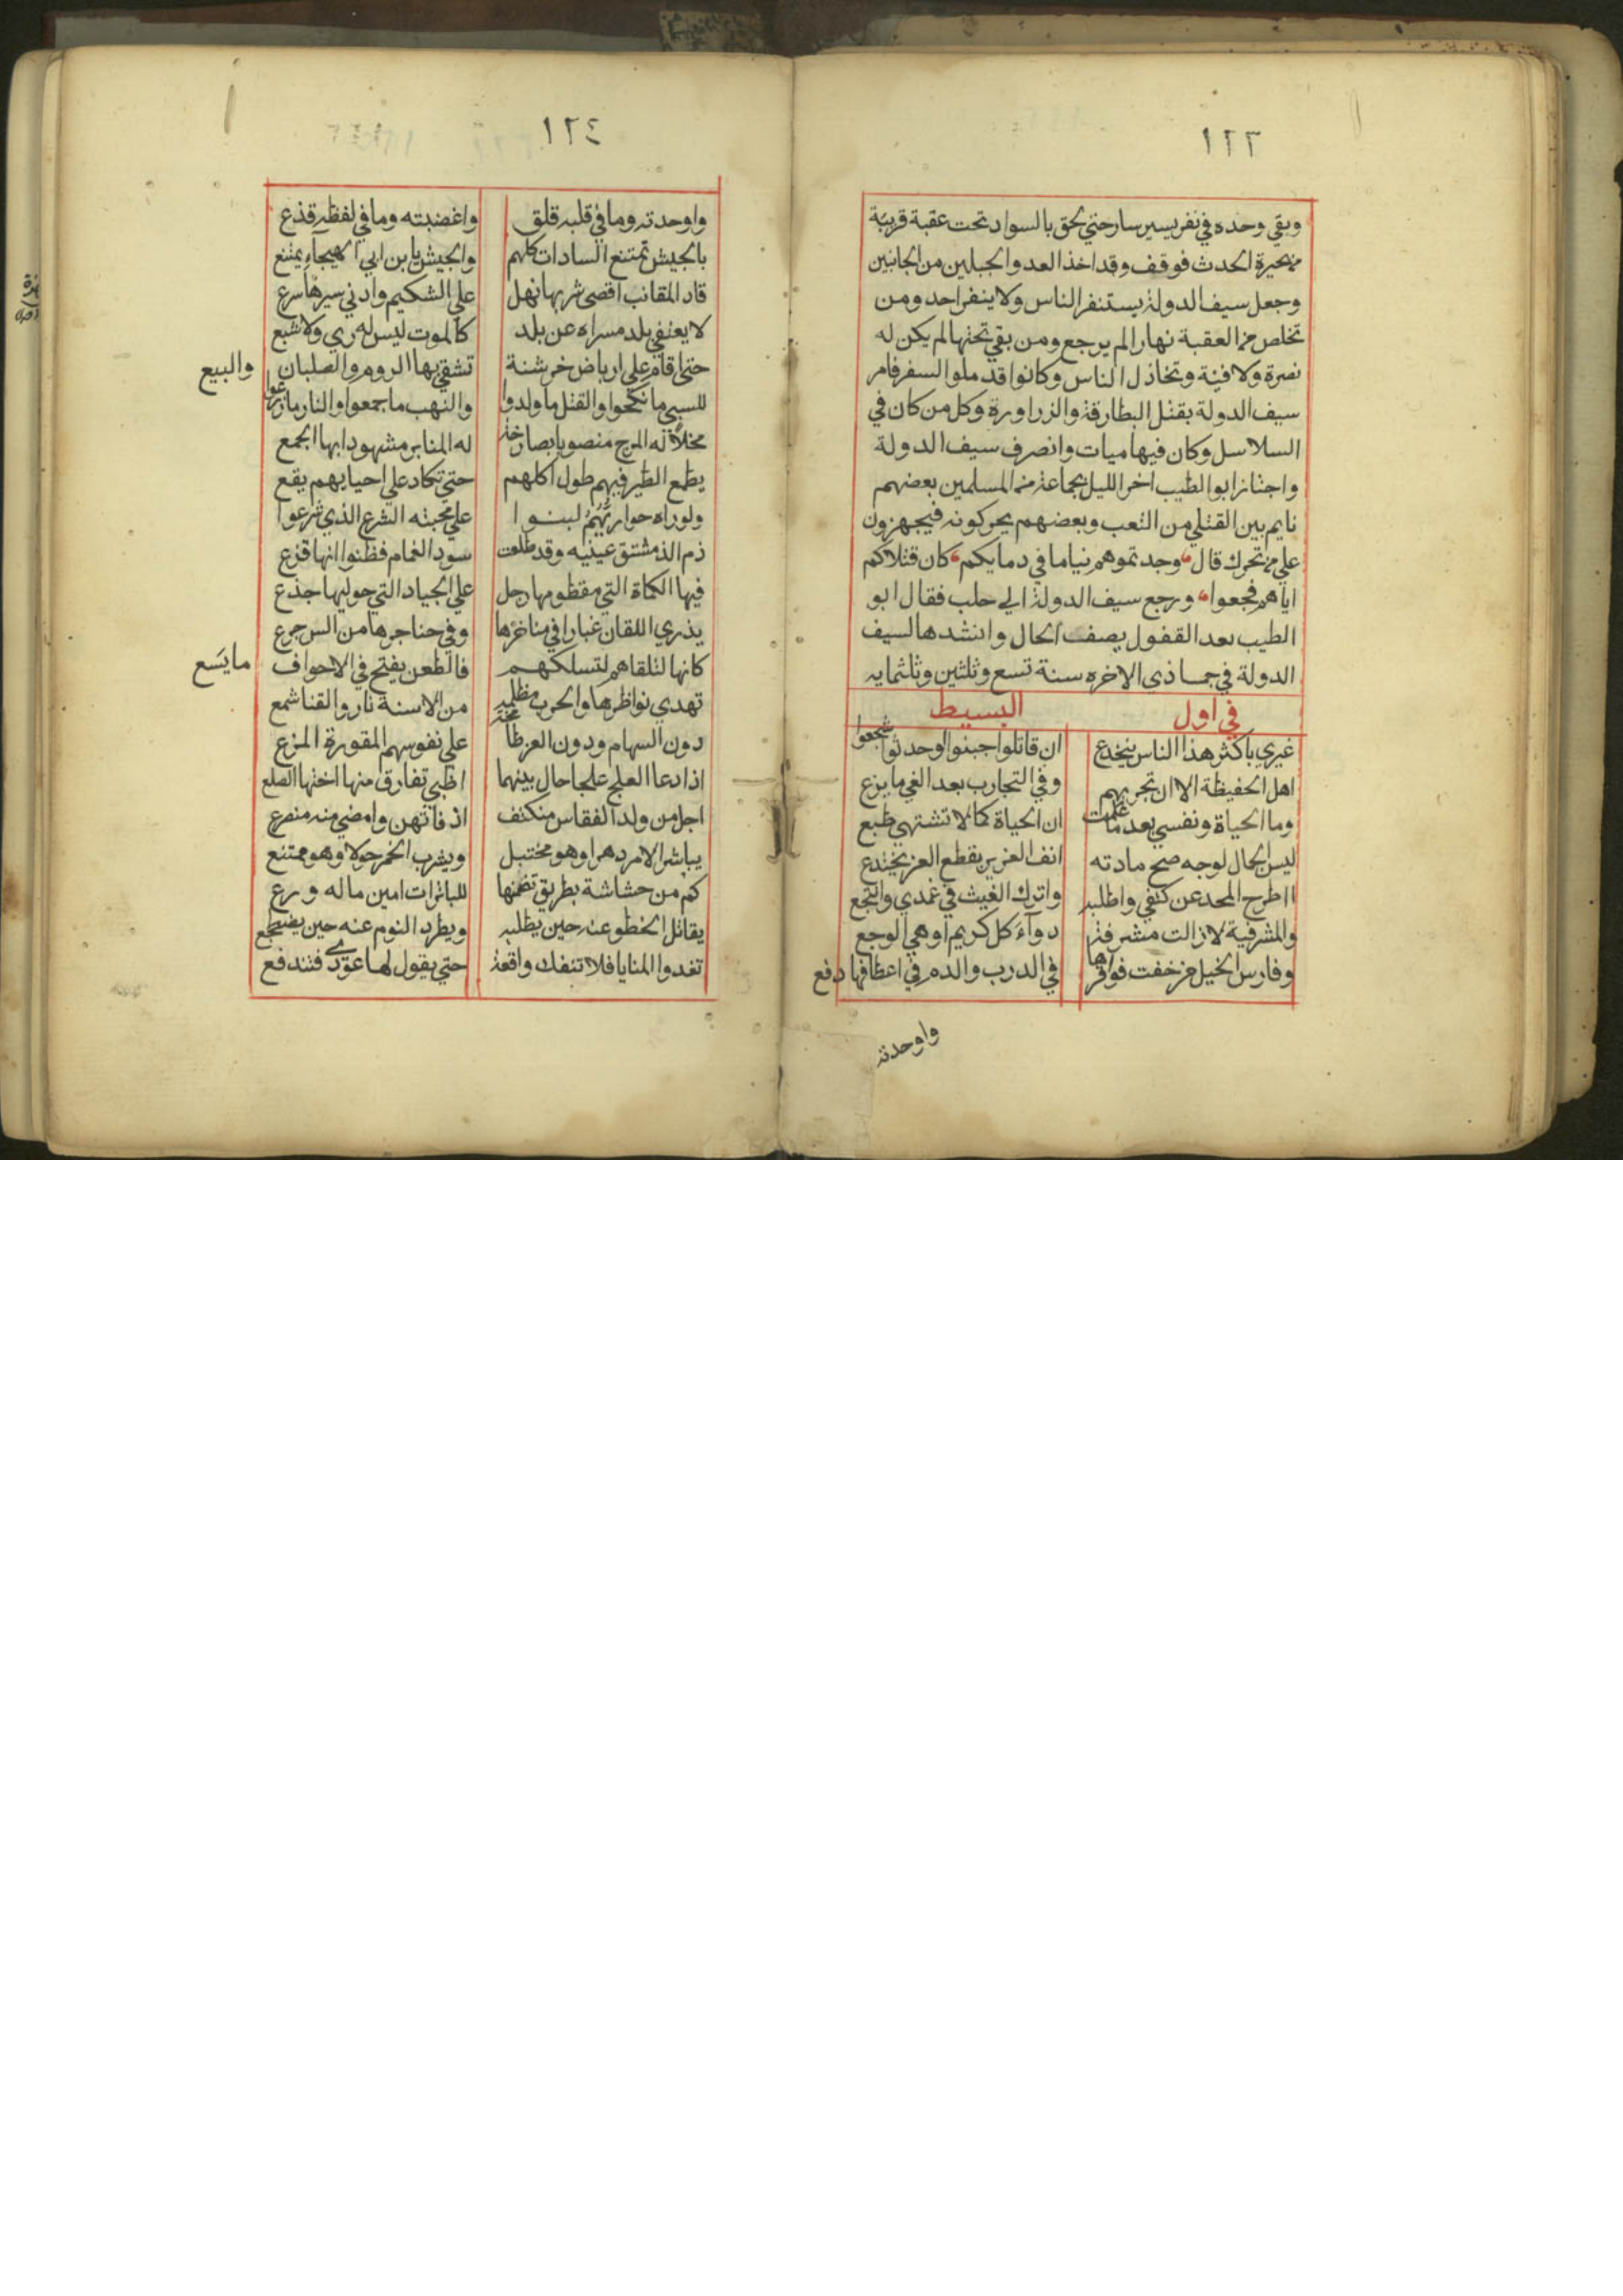 ١٢٣
وبقي وحده في نفر يسير سار حتي لحق بالسواد تحت عقبة قريبة
من بحيرة الحدث فوقف وقد اخذ العدو الجبلين من الجانبين
وجعل سيف الدولة يستنفر الناس ولا ينفر احد ومن
تخلص من العقبة نهارا لم يرجع ومن بقي تحتها لم يكن له
نصرة ولا فيئة وتخاذل الناس وكانوا قد ملوا السفر فامر
سيف الدولة بقتل البطارقة والزراورة وكل من كان في
السلاسل وكان فيها ميات وانصرف سيف الدولة
واجتاز ابو الطيب اخر الليل بجماعة من المسلمين بعضهم
نايم بين القتلي من التعب وبعضهم يحركونه فيجهزون
علي من تحرك قال وجدتموهم نياما في دمايكم كان قتلاكم
اياهم فجعوا ورجع سيف الدولة الي حلب فقال ابو
الطيب بعد القفول يصف الحال وانشدها لسيف
الدولة في جماذى الاخره سنة تسع وثلثين وثلثمايه
في اول البسيط
غيري باكثر هذا الناس ينخدع ان قاتلوا جبنوا او حدثوا شجعوا
اهل الحفيظة الا ان تجربهم وفي التجارب بعد الغي ما يزع
وما الحياة ونفسي بعد ما علمت ان الحياة كما لا تشتهي طبع
ليس الجمال لوجه صح مادته انف العزيز بقطع العز يجتدع
ااطرح المجد عن كتفي واطلبه واترك الغيث في غمدي وانتجع
والمشرفية لا زالت مشرفة دوآء كل كريم او هي الوجع
وفارس الخيل من خفت فوقرها في الدرب والدم في اعطافها دفع
واوحدته
١٢٤
واوحدته وما في قلبه قلق واغضبته وما في لفظه قذع
بالجيش تمتنع السادات كلهم والجيش بابن ابي الهيجآء يمتنع
قاد المقانب اقصى شربها نهل علي الشكيم وادني سيرها سرع
لا يعتفي بلد مسراه عن بلد كالموت ليس له ري ولا شبع
حتي اقام علي ارباض خرشنة تشقي بها الروم والصلبان والبيع
للسبي ما نكحوا والقتل ما ولدوا والنهب ما جمعوا والنار ما زرعوا
مخلًا له المرج منصوبا بصارخة له المنابر مشهودا بها الجمع
يطمع الطير فيهم طول اكلهم حتي تكاد علي احيايهم يقع
ولو راه حواريُّهُمُ لبنوا علي محبته الشرع الذي شرعوا
ذم الدمشتق عينيه وقد طلعت سود الغمام فظنوا انها قزع
فيها الكماة التي مفطومها رجل علي الجياد التي حوليها جذع
يذري اللقان غبارا في مناخرها وفي حناجرها من الس جرع
كانها لتلقاهم لتسلكهم فالطعن يفتح في الاجواف ما يَسَع
تهدي نواظرها والحرب مظلمة من الاسنة نار والقنا شمع
دون السهام ودون العز طا علي نفوسهم المقورة المزع
اذا دعا العلج علجا حال بينهما اظمي تفارق منها اختها الضلع
اجل من ولد الفقاس منكتف اذ فاتهن وامضي منه منصرع
يباشر الامر دهرا وهو مختبل ويشرب الخمر حولا وهو ممتنع
كم من حشاشة بطريق تضمنها للباترات امين ماله ورع
يقاتل الخطو عنه حين يطلبه ويطرد النوم عنه حين يضطجع
تغدوا المنايا فلا تنفك واقعة حتي يقول لها عودي فتندفع